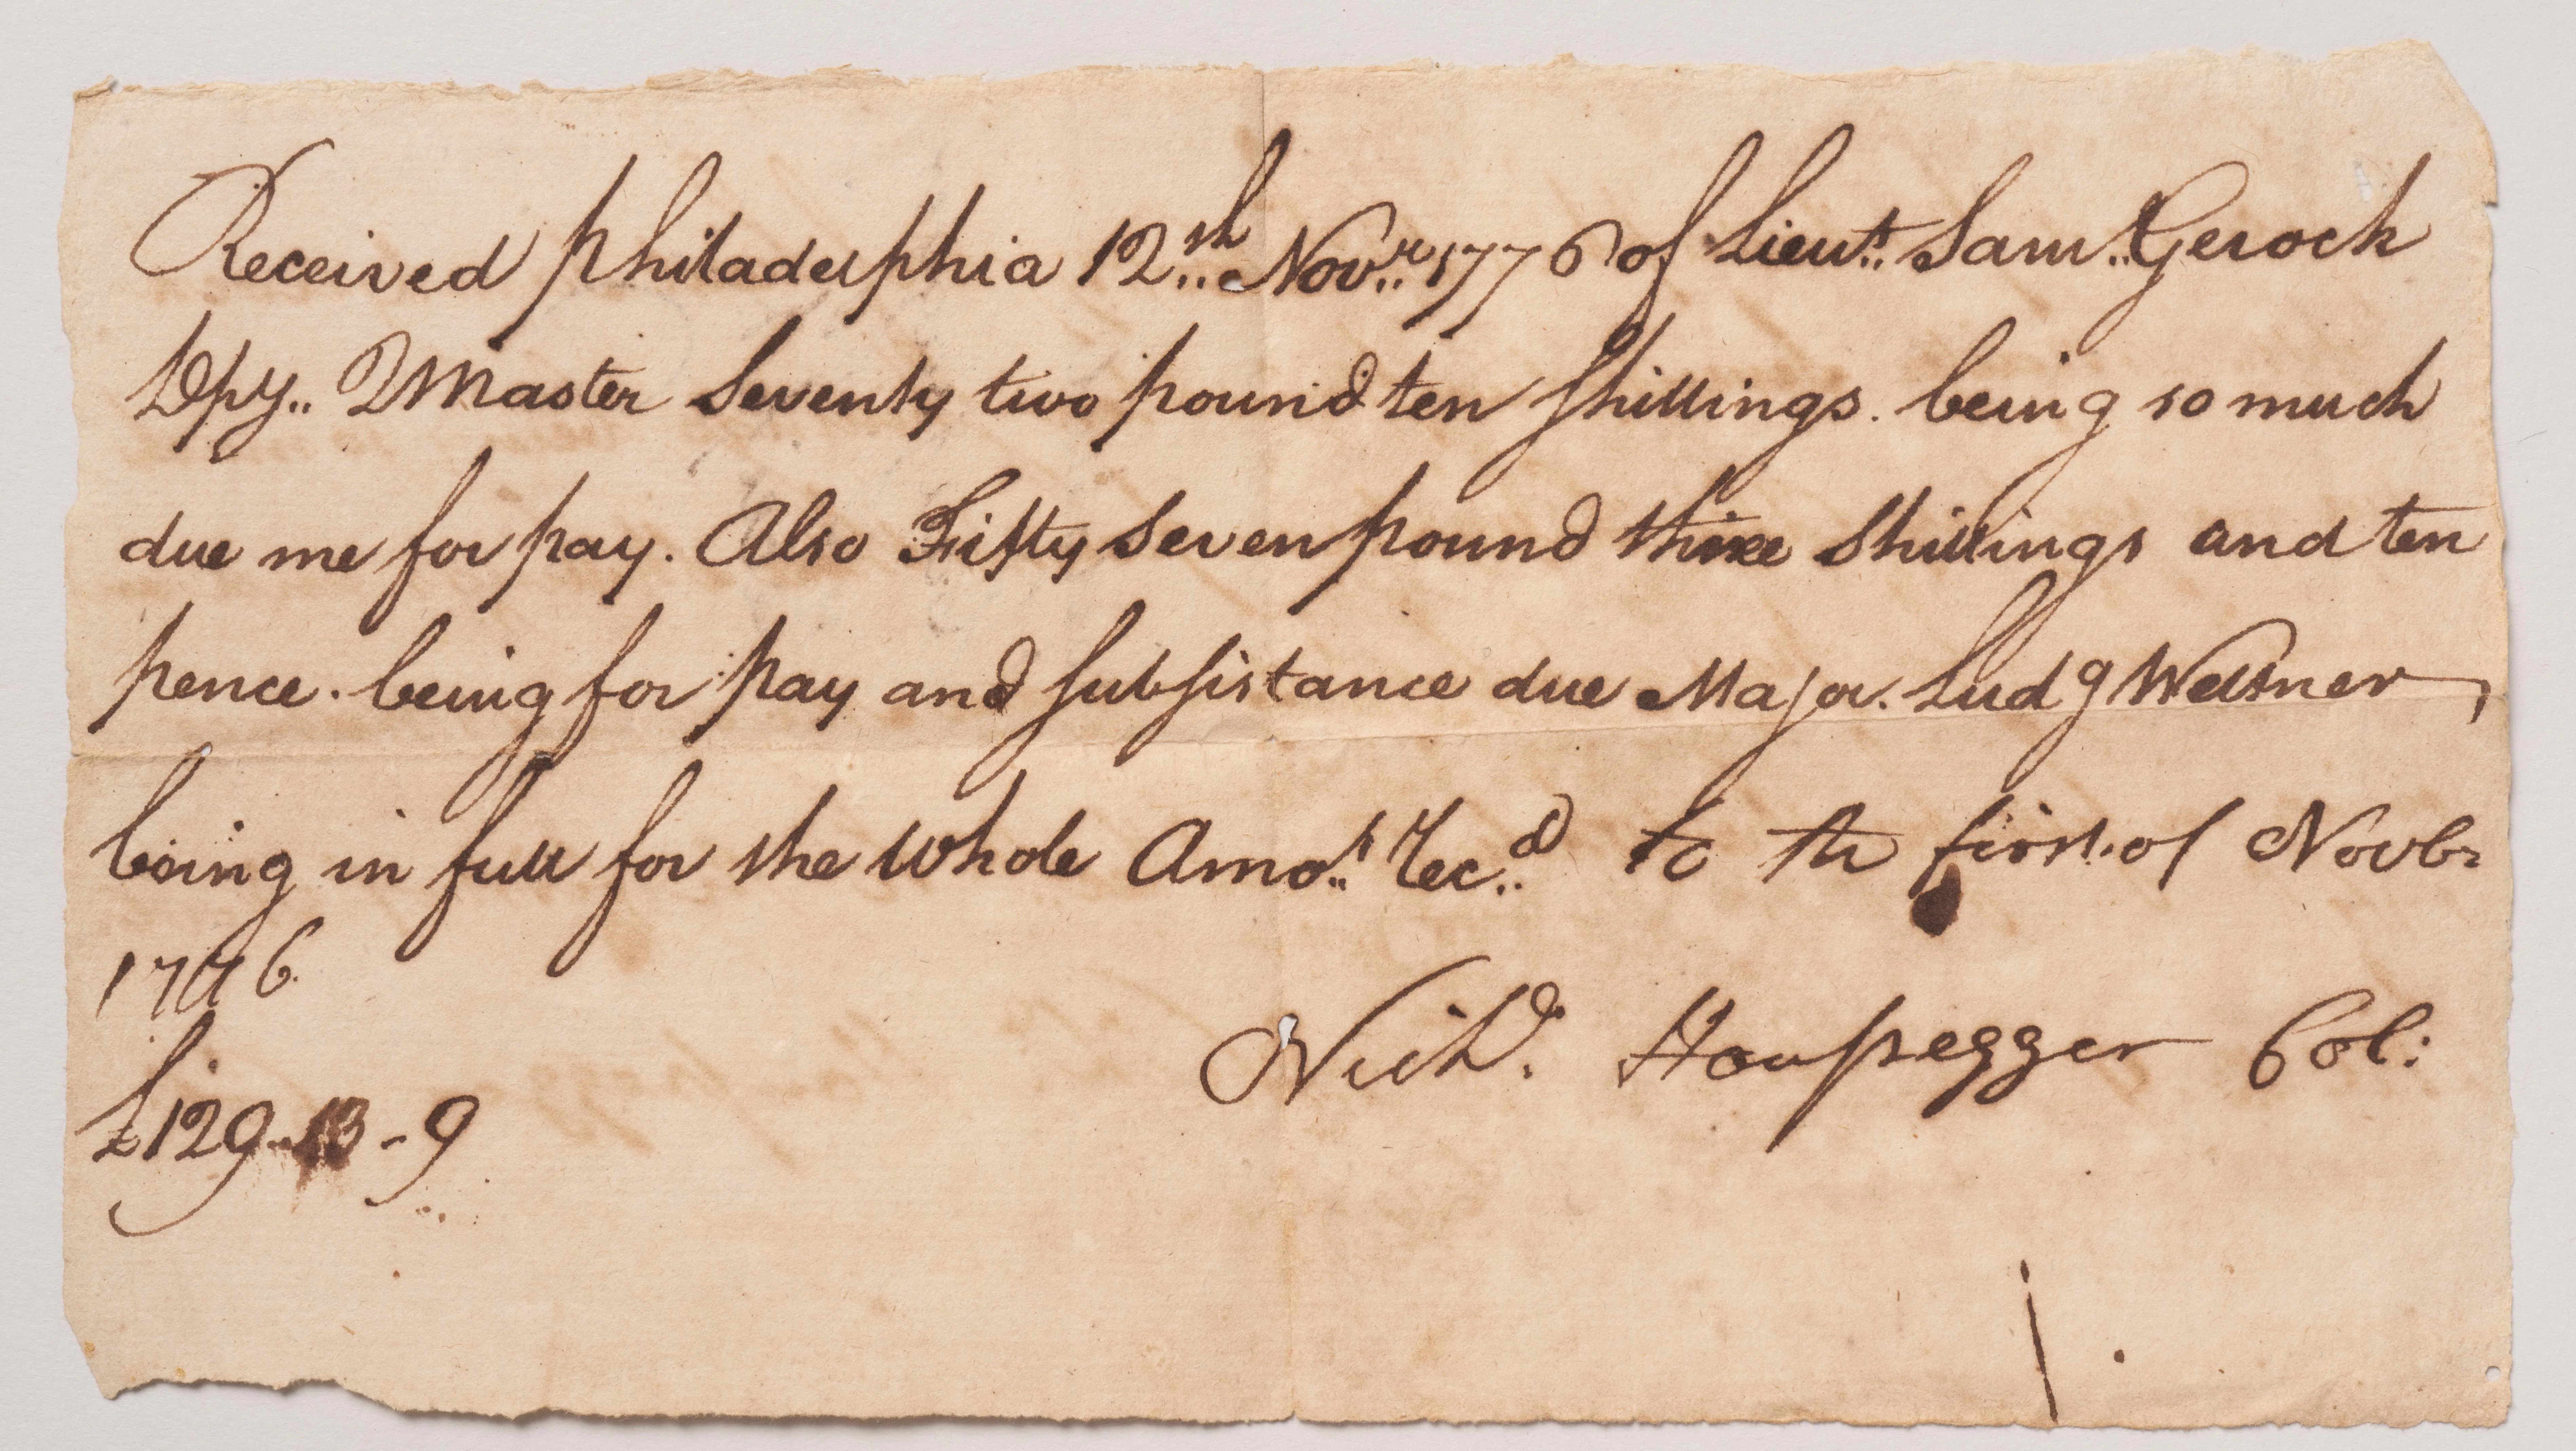 Received Philadelphia 12th Novr. 1776 of Lieut. Sam. Gerock
Dpy. QMaster Seventy two pound ten Shillings. being so much
due me for pay. Also Fifty Seven pound three Shillings and ten
pence. being for pay and subsistance due Major. Ludg Weltner,
being in full for the whole Amot. Recd. to the first. of Novbr
1776
£129-13-9
Nichs. Houssegger Col: